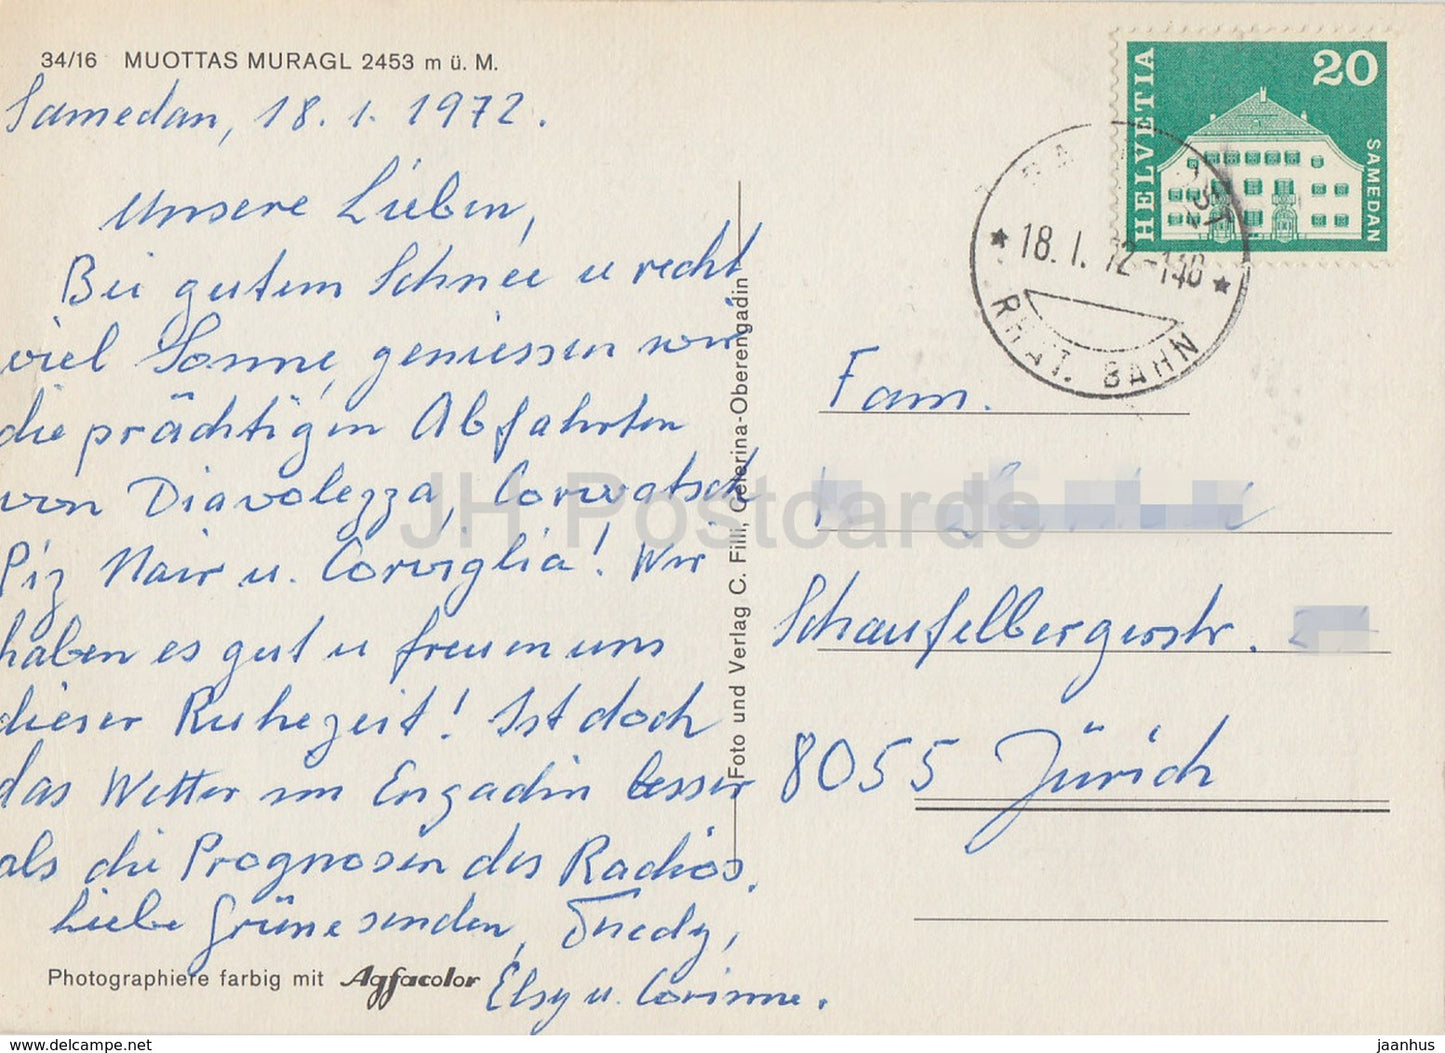 34/16 MUOTTAS MURAGL 2453 m ü. M.
Samedan, 18. 1. 1972.
Unsere Lieben,
Bei gutem Schnee u recht
viel Sonne, geniessen wir
die prächtigen Abfahrten
von Diavolezza, Corvatsch
Piz Nair u. Corviglia! Wir
haben es gut u freuen uns
dieser Ruhezeit! Ist doch
das Wetter im Engadin besser
als die Prognosen des Radios.
Liebe Grüne senden,
Elsy u. Corinne.
Photographiere farbig mit Agfacolor
Foto und Verlag C. Filli, Celerina-Oberengadin
HELVETIA
20
SAMEDAN
18. I. 72-1
RHÄT. BAHN
Fam.
Schaufelbergerstr.
8055 Zürich
JH Postcards
www.delcampe.net
jaanhus